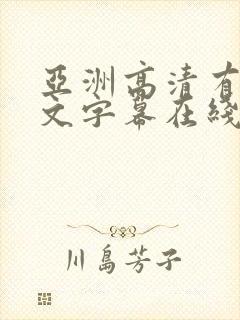 亞洲高清有
文字幕在綫
川島芳子